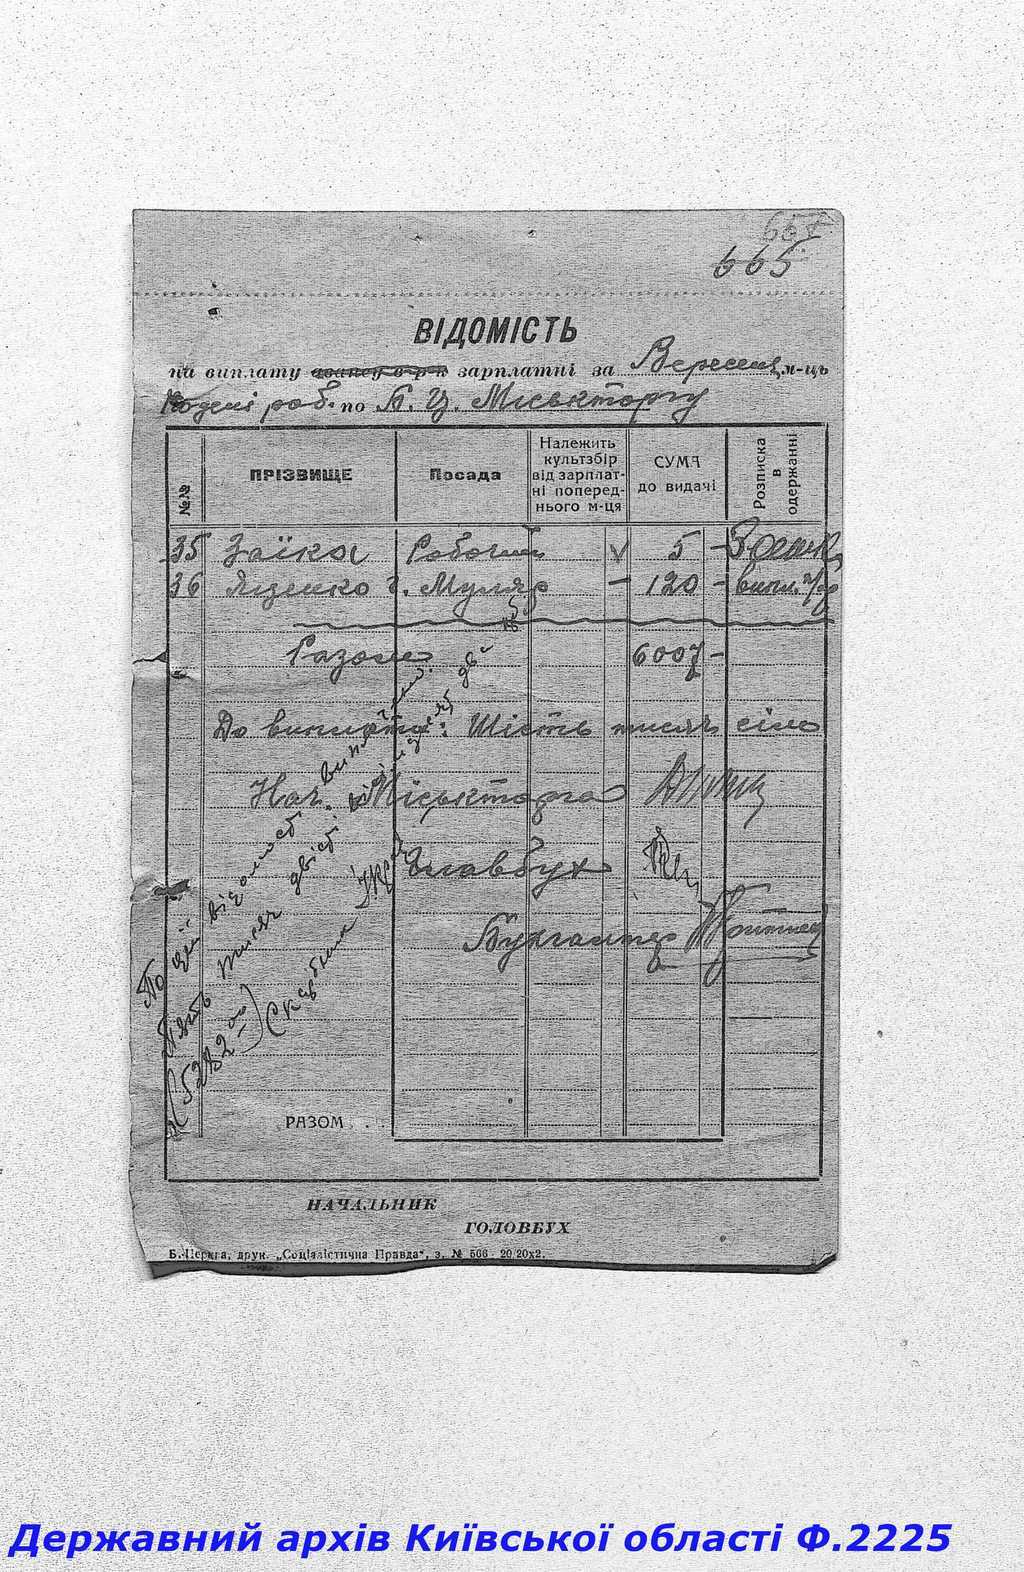 665
ВІДОМІСТЬ
на виплату авансу в р-к зарплатні за Вересень м-ць
роб. по Б. Ц. Міськторгу
№№
ПРІЗВИЩЕ
Посада
Належить культзбір від зарплат-ні поперед-нього м-ця
СУМА до видачі
Розписка в одержанні
35 Заїка Робочий V 5 -
36 Яценко г. Муляр - 120 - випл.
Разом 6007 -
До виплати: Шість тисяч сім
Нач. Міськторга
Главбух
Бухгалтер
По цій відомості виплачено
П'ять тисяч двісті вісімдесят дві
(5282 00)
РАЗОМ . .
НАЧАЛЬНИК
ГОЛОВБУХ
Б.-Церква, друк. „Соціалістична Правда", з. № 566. 20/20х2.
Державний архів Київської області Ф.2225